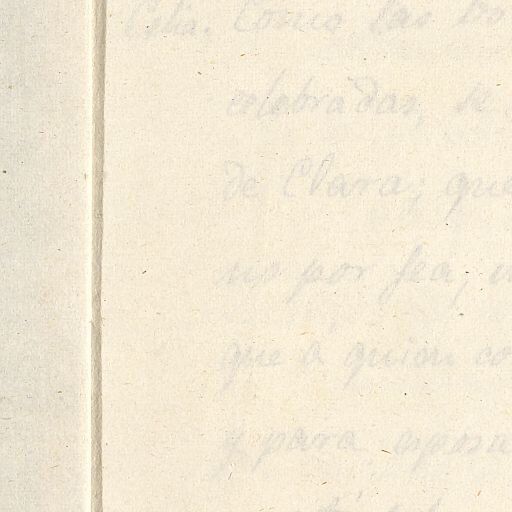 Celia. Como las bo
celebradas, se
de Clara; que
no por fea,
que a quien co
y para esposa